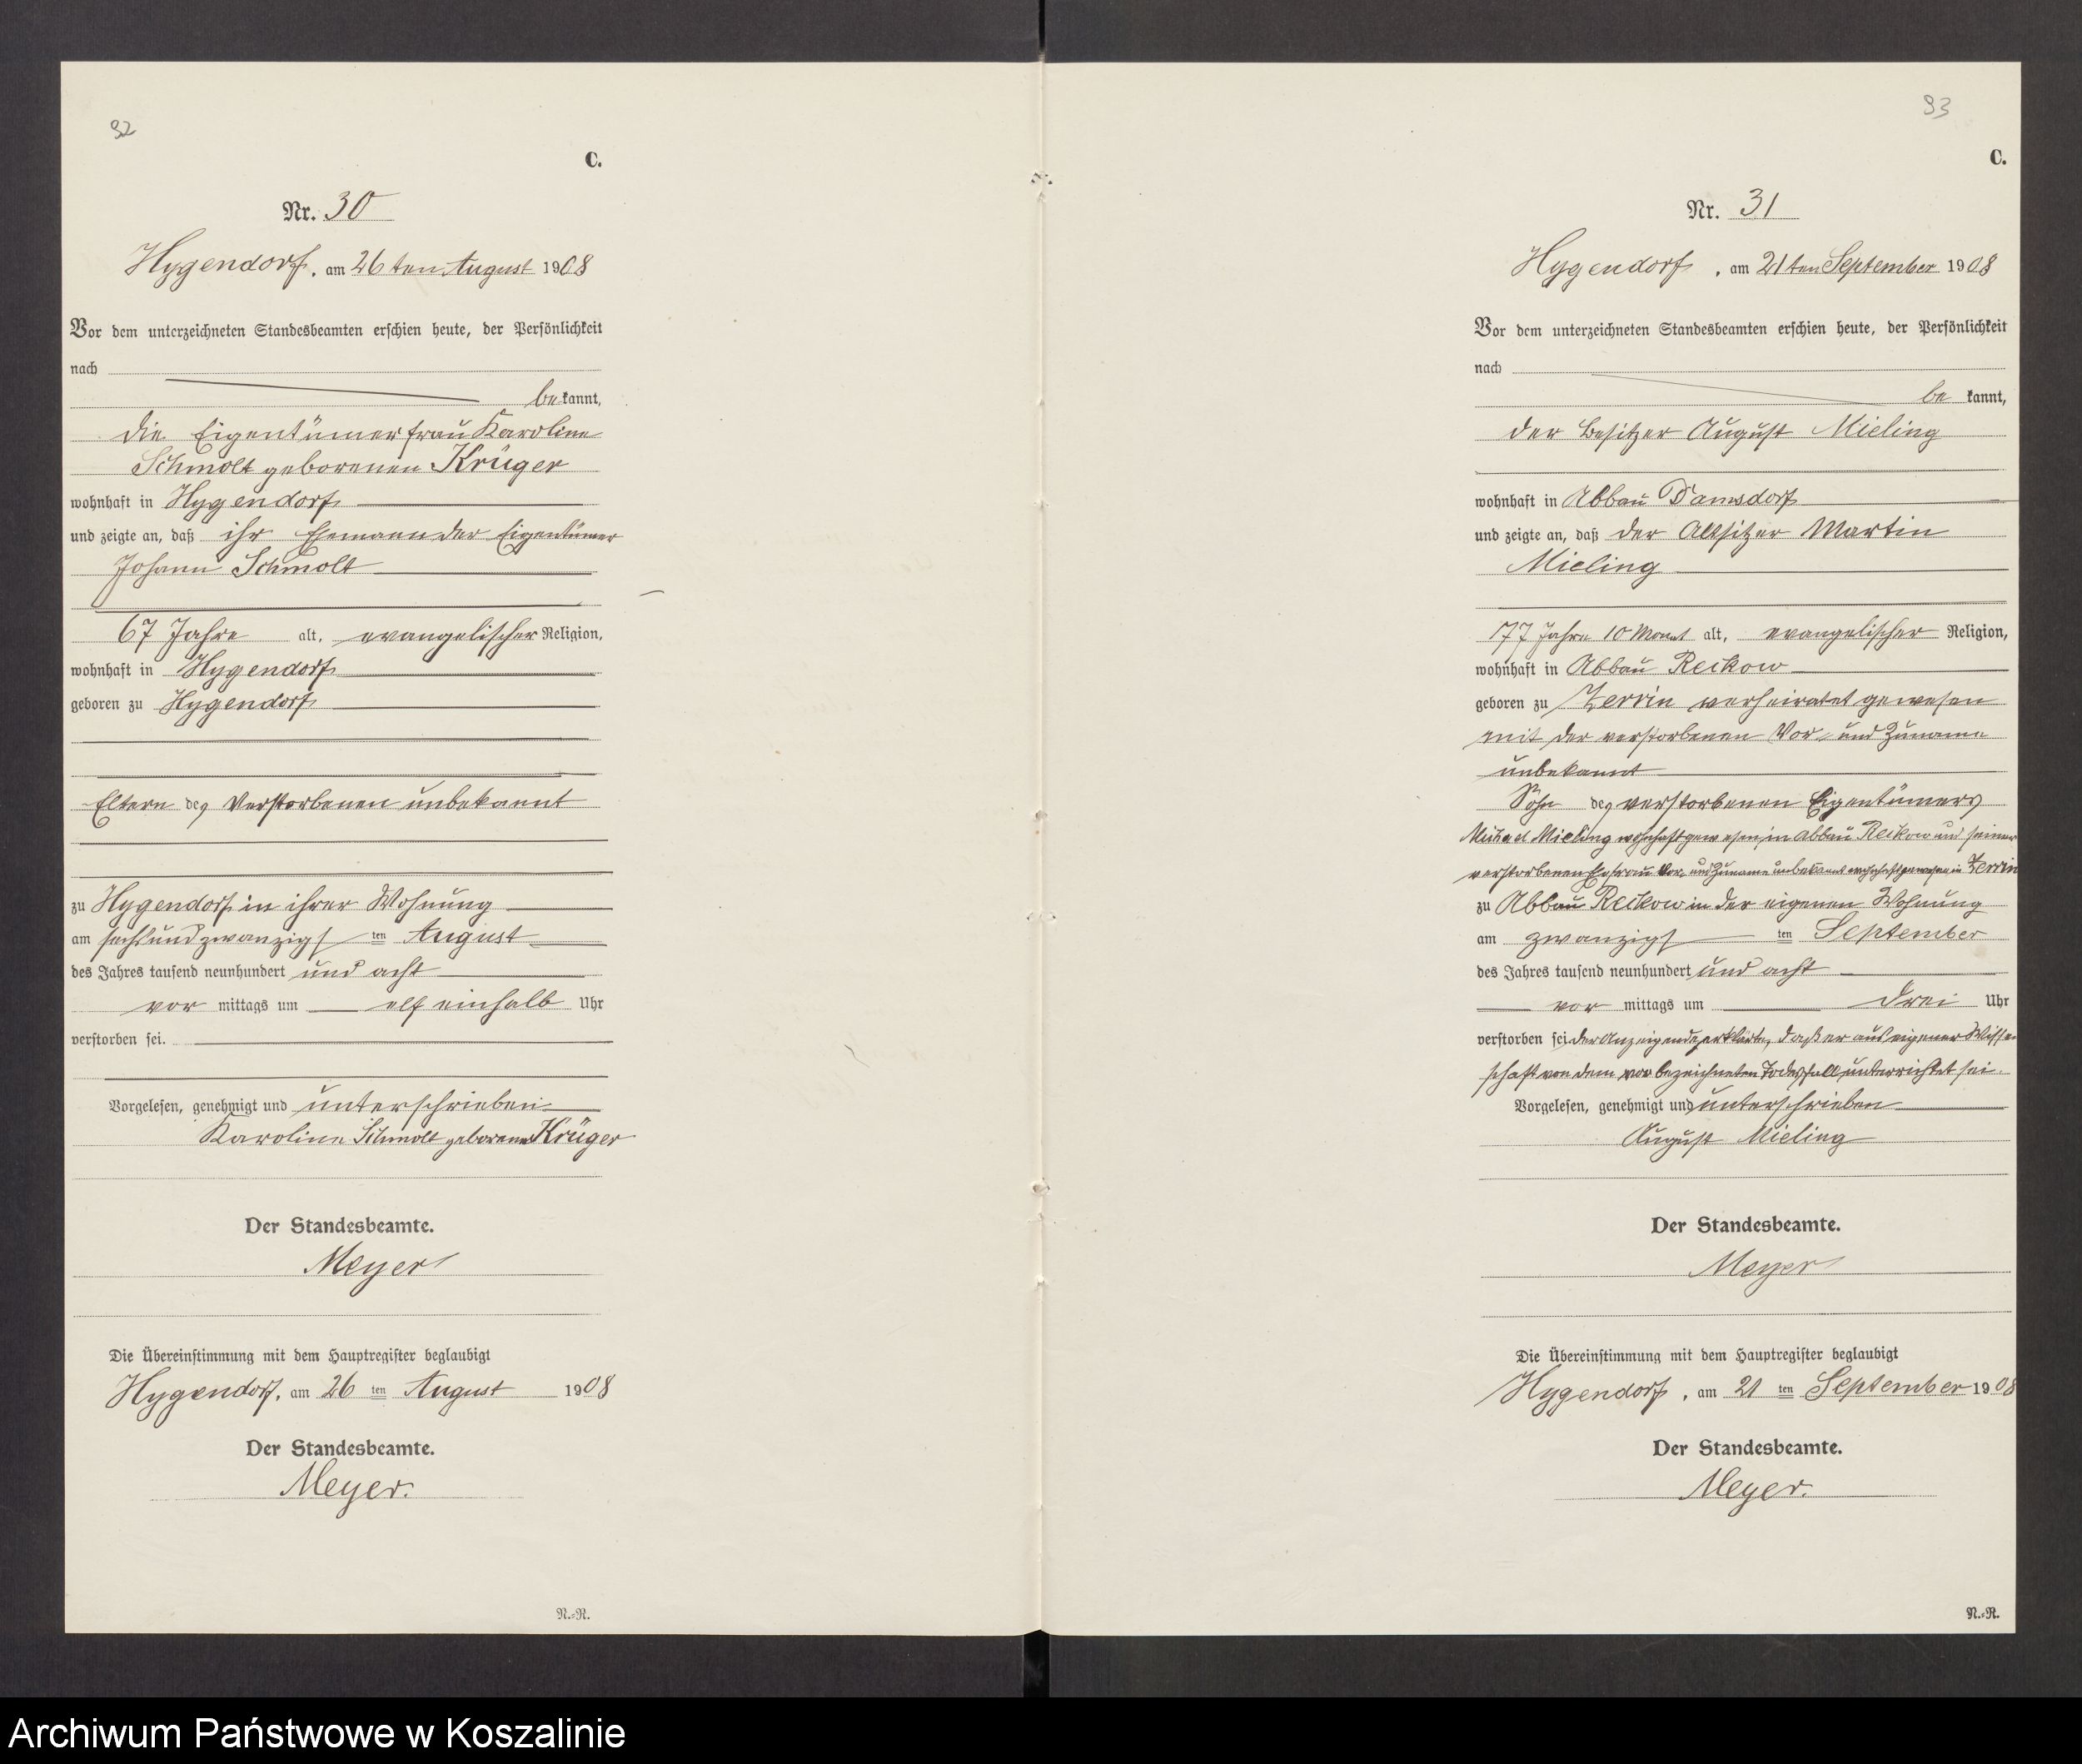 92
C.
Nr. 30
Hygendorf, am 26ten August 1908
Vor dem unterzeichneten Standesbeamten erschien heute, der Persönlichkeit
nach
bekannt,
die Eigentümerfrau Karoline
Schmolt geborenen Krüger
wohnhaft in Hygendorf
und zeigte an, daß ihr Ehemann der Eigentümer
Johann Schmolt
67 Jahre alt, evangelischer Religion,
wohnhaft in Hygendorf
geboren zu Hygendorf
Eltern des Verstorbenen unbekannt
zu Hygendorf in ihrer Wohnung
am sechsundzwanzigsten August
des Jahres tausend neunhundert und acht
vor mittags um elf einhalb Uhr
verstorben sei.
Vorgelesen, genehmigt und unterschrieben
Karoline Schmolt geborene Krüger
Der Standesbeamte.
Meyer
Die Übereinstimmung mit dem Hauptregister beglaubigt
Hygendorf, am 26 ten August 1908
Der Standesbeamte.
Meyer.
N.-R.
93
C.
Nr. 31
Hygendorf, am 21ten September 1908
Vor dem unterzeichneten Standesbeamten erschien heute, der Persönlichkeit
nach
be kannt,
der Besitzer August Mieling
wohnhaft in Abbau Damsdorf
und zeigte an, daß der Altsitzer Martin
Mieling
77 Jahre 10 Monat alt, evangelischer Religion,
wohnhaft in Abbau Reckow
geboren zu Zerrin verheiratet gewesen
mit der verstorbenen Vor- und Zuname
unbekannt
Sohn des verstorbenen Eigentümers
Michael Mieling wohnhaft gewesen in Abbau Reckow und seiner
verstorbenen Ehefrau Vor- und Zuname unbekannt wohnhaft gewesen in Zerrin
zu Abbau Reckow in der eigenen Wohnung
am zwanzigsten September
des Jahres tausend neunhundert und acht
vor mittags um drei Uhr
verstorben sei. Der Anzeigende erklärte, daß er aus eigener Wissen
schaft von dem vorbezeichneten Todesfall unterrichtet sei.
Vorgelesen, genehmigt und unterschrieben
August Mieling
Der Standesbeamte.
Meyer
Die Übereinstimmung mit dem Hauptregister beglaubigt
Hygendorf, am 21 ten September 1908
Der Standesbeamte.
Meyer.
N.-R.
Archiwum Państwowe w Koszalinie